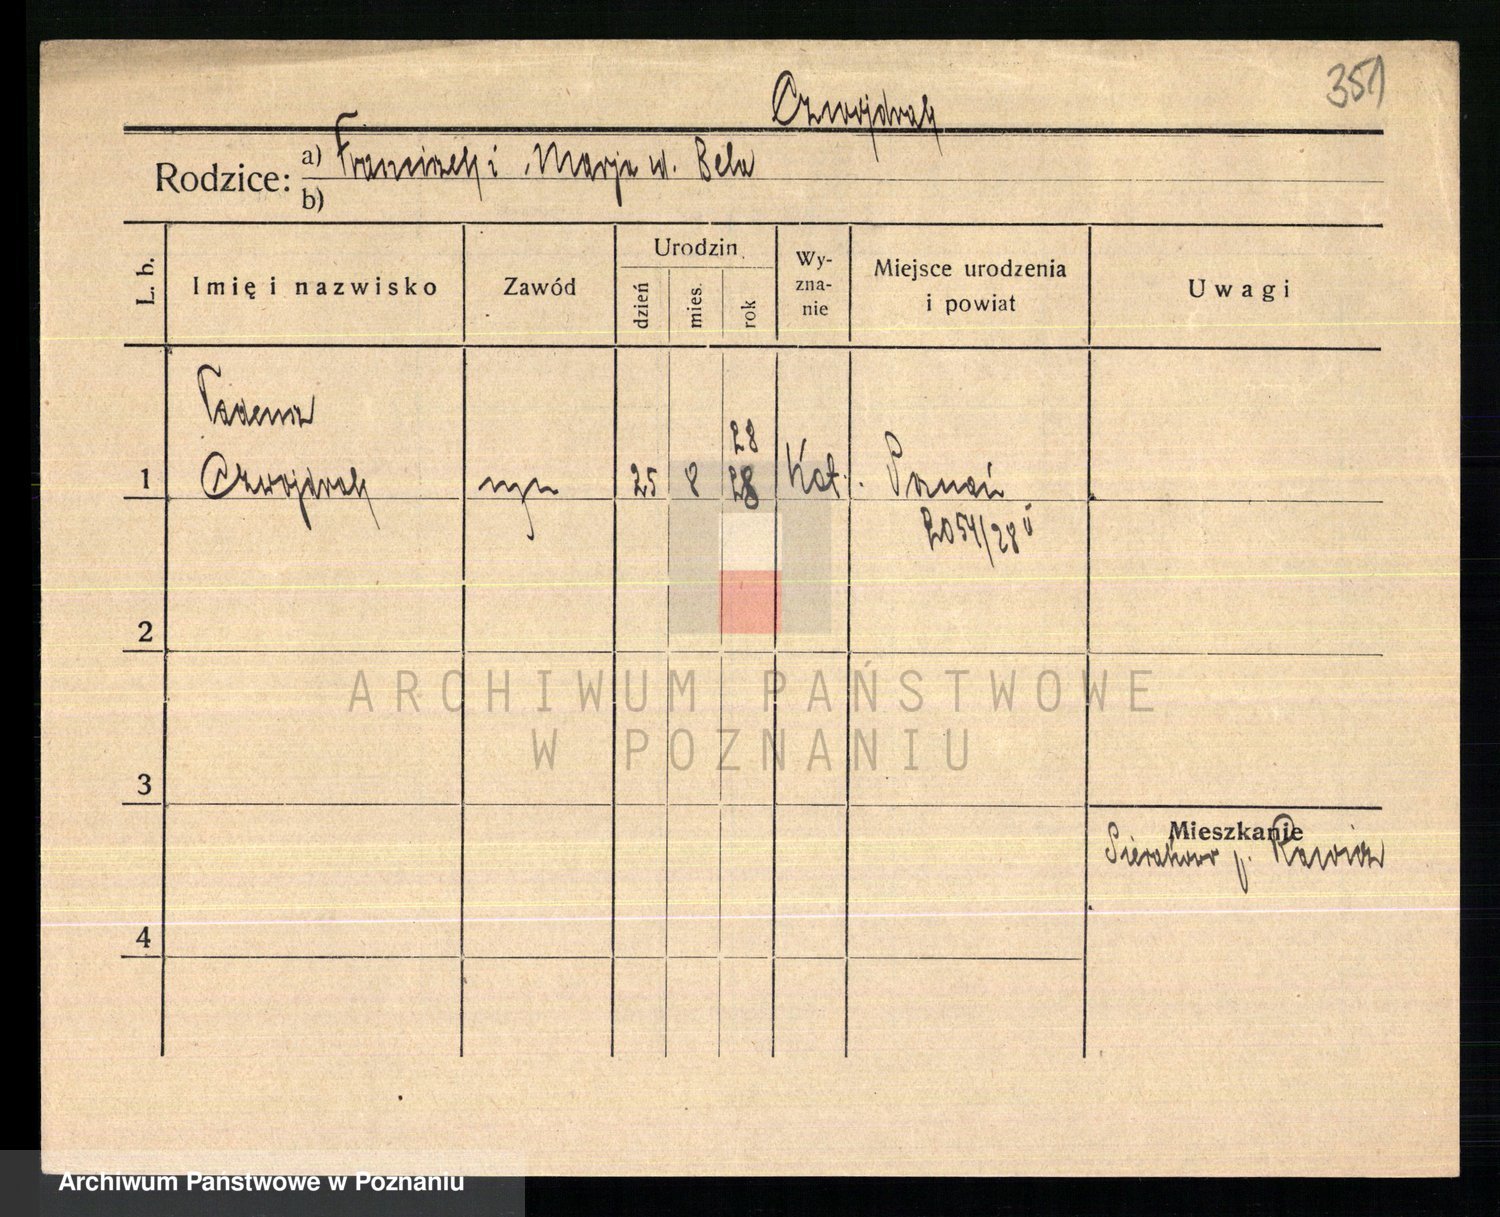 351
Czwojdrak
Rodzice: a) Franciszek i Marja w. Bela
b)
L. b. Imię i nazwisko Zawód Urodzin Wy-zna-nie Miejsce urodzenia i powiat Uwagi
dzień mies. rok
Tadeusz
28
1 Czwojdrak syn 25 8 28 Kat. Poznań
2054/28
2
ARCHIWUM PAŃSTWOWE
W POZNANIU
3
Mieszkanie
Sierakowo p. Rawicz
4
Archiwum Państwowe w Poznaniu